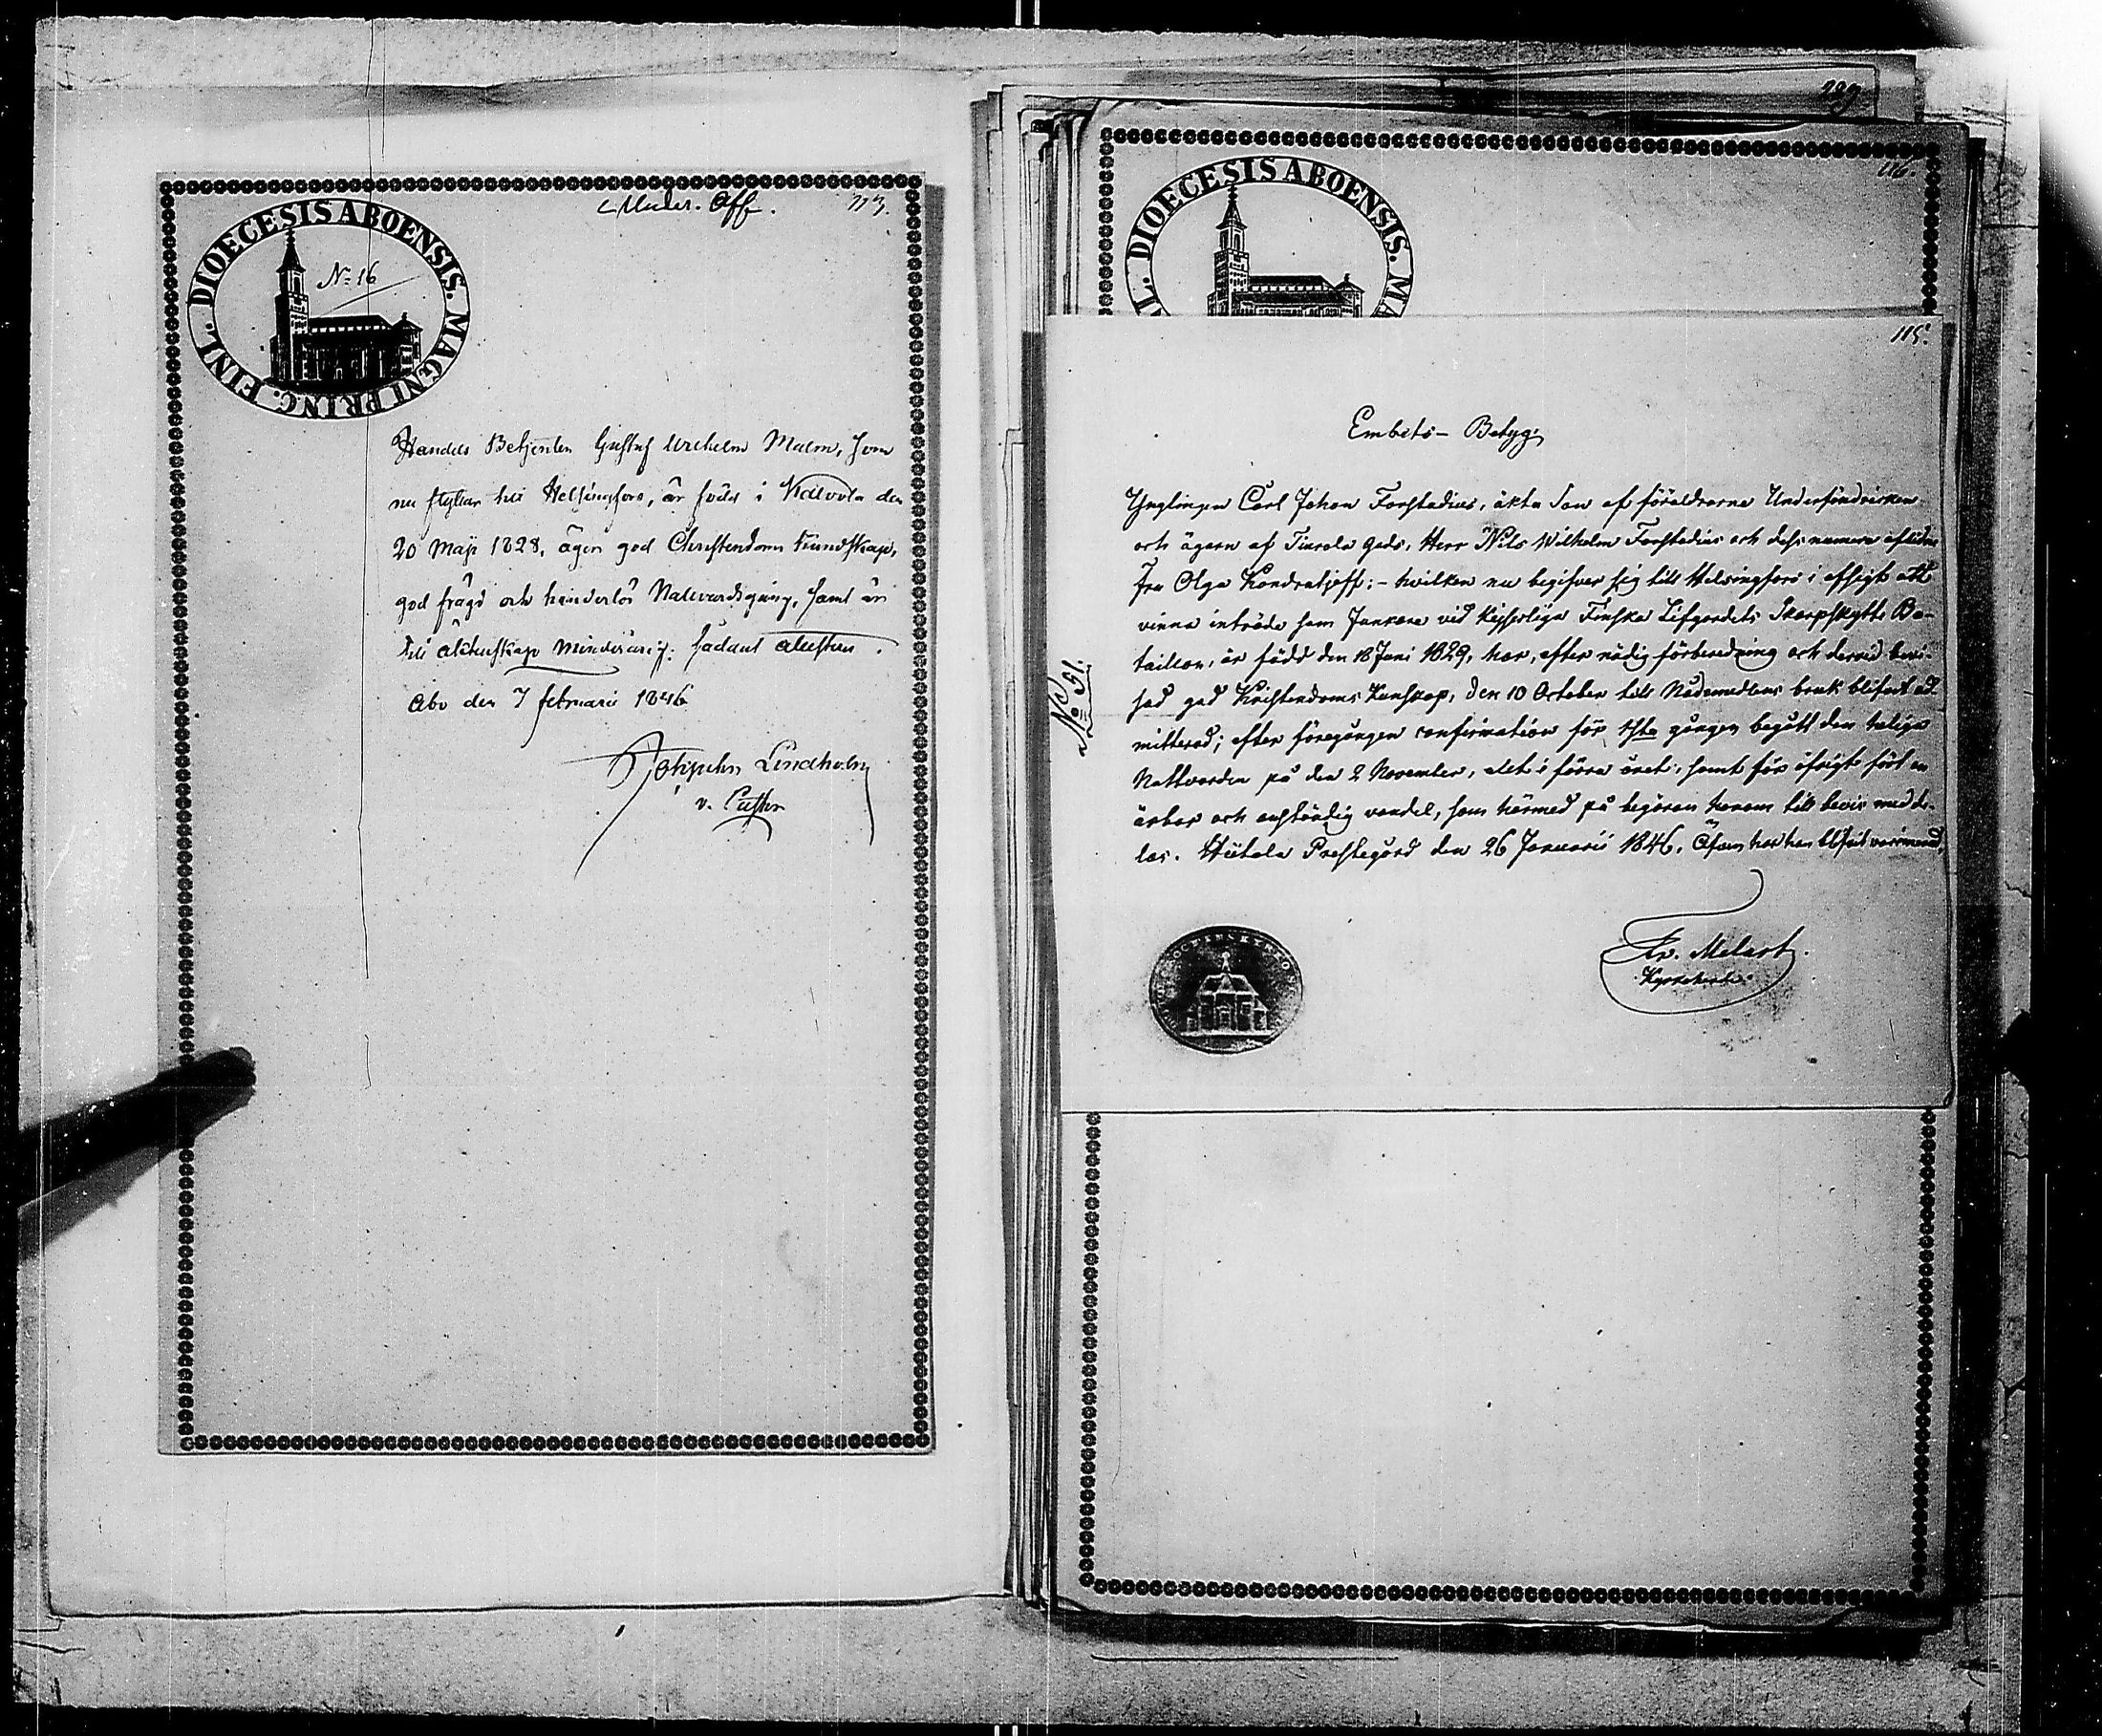 Muder. Aff.
113.
DIOECESIS ABOENSIS. MAGNI PRINC. FINL.
N: 16
Handels Betjenten Gustaf Wilhelm Malm, som
nu flyttar till Helsingfors, är född i Kalvola den
20 Maji 1828, äger god Christendoms kundskap,
god frägd och hinderlös Nattvardsgång, samt är
till äktenskap minderårig; sådant attesteras.
Åbo den 7 februarii 1846
Lindholm
v. Pastor
229
116.
DIOECESIS ABOENSIS. MA
115.
Embets-Betyg.
Ynglingen Carl Johan Forstadius, äkta Son af föräldrarne Underfändricken
och ägaren af Tiurala Gods, Herr Nils Wilhelm Forstadius och dess numera aflidne
Fru Olga Kondratjeff; - hvilken nu begifver sig till Helsingfors i afsigt att
vinna inträde som Junkare vid Kejserliga Finska Lifgardets Skarpskytte Ba-
taillon, är född den 18 Juni 1829, har, efter nödig förberedning och dervid bevi-
sad god Kristendoms Kunskap, den 10 October till Nådemedlens bruk blifvit ad-
mitterad; efter föregången confirmation för 1sta gången begått den heliga
Nattvarden på den 2 November, allt i förra året; samt för öfrigt fört en
ärbar och anständig vandel, som härmed på begäran honom till bevis medde-
las. Hiitola Prestegård den 26 Januarii 1846. Äfven har han blifvit vaccinerad.
No 51.
Fr. Melart.
Kyrkoherde.